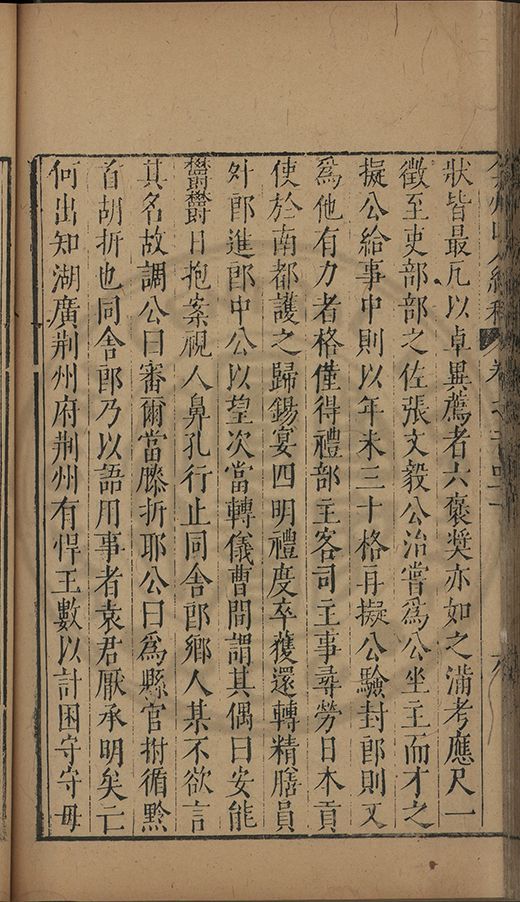 狀皆最凡以卓異薦者六褒奬亦如之滿考應尺一
徵至吏部部之佐張文毅公治嘗爲公坐主而才之
擬公給事中則以年未三十格再擬公驗封郎則又
爲他有力者格僅得禮部主客司主事尋勞日本貢
使於南都護之歸錫宴四明禮度卒獲還轉精膳員
外郎進郎中公以望次當轉儀曹間謂其偶曰安能
欝欝日抱案視人鼻孔行止同舍郎鄉人某不欲言
其名故調公曰審爾當膝折耶公曰爲縣官拊循黔
首胡折也同舍郎乃以語用事者袁君厭承明矣亡
何出知湖廣荆州府荆州有悍王數以計困守守毋